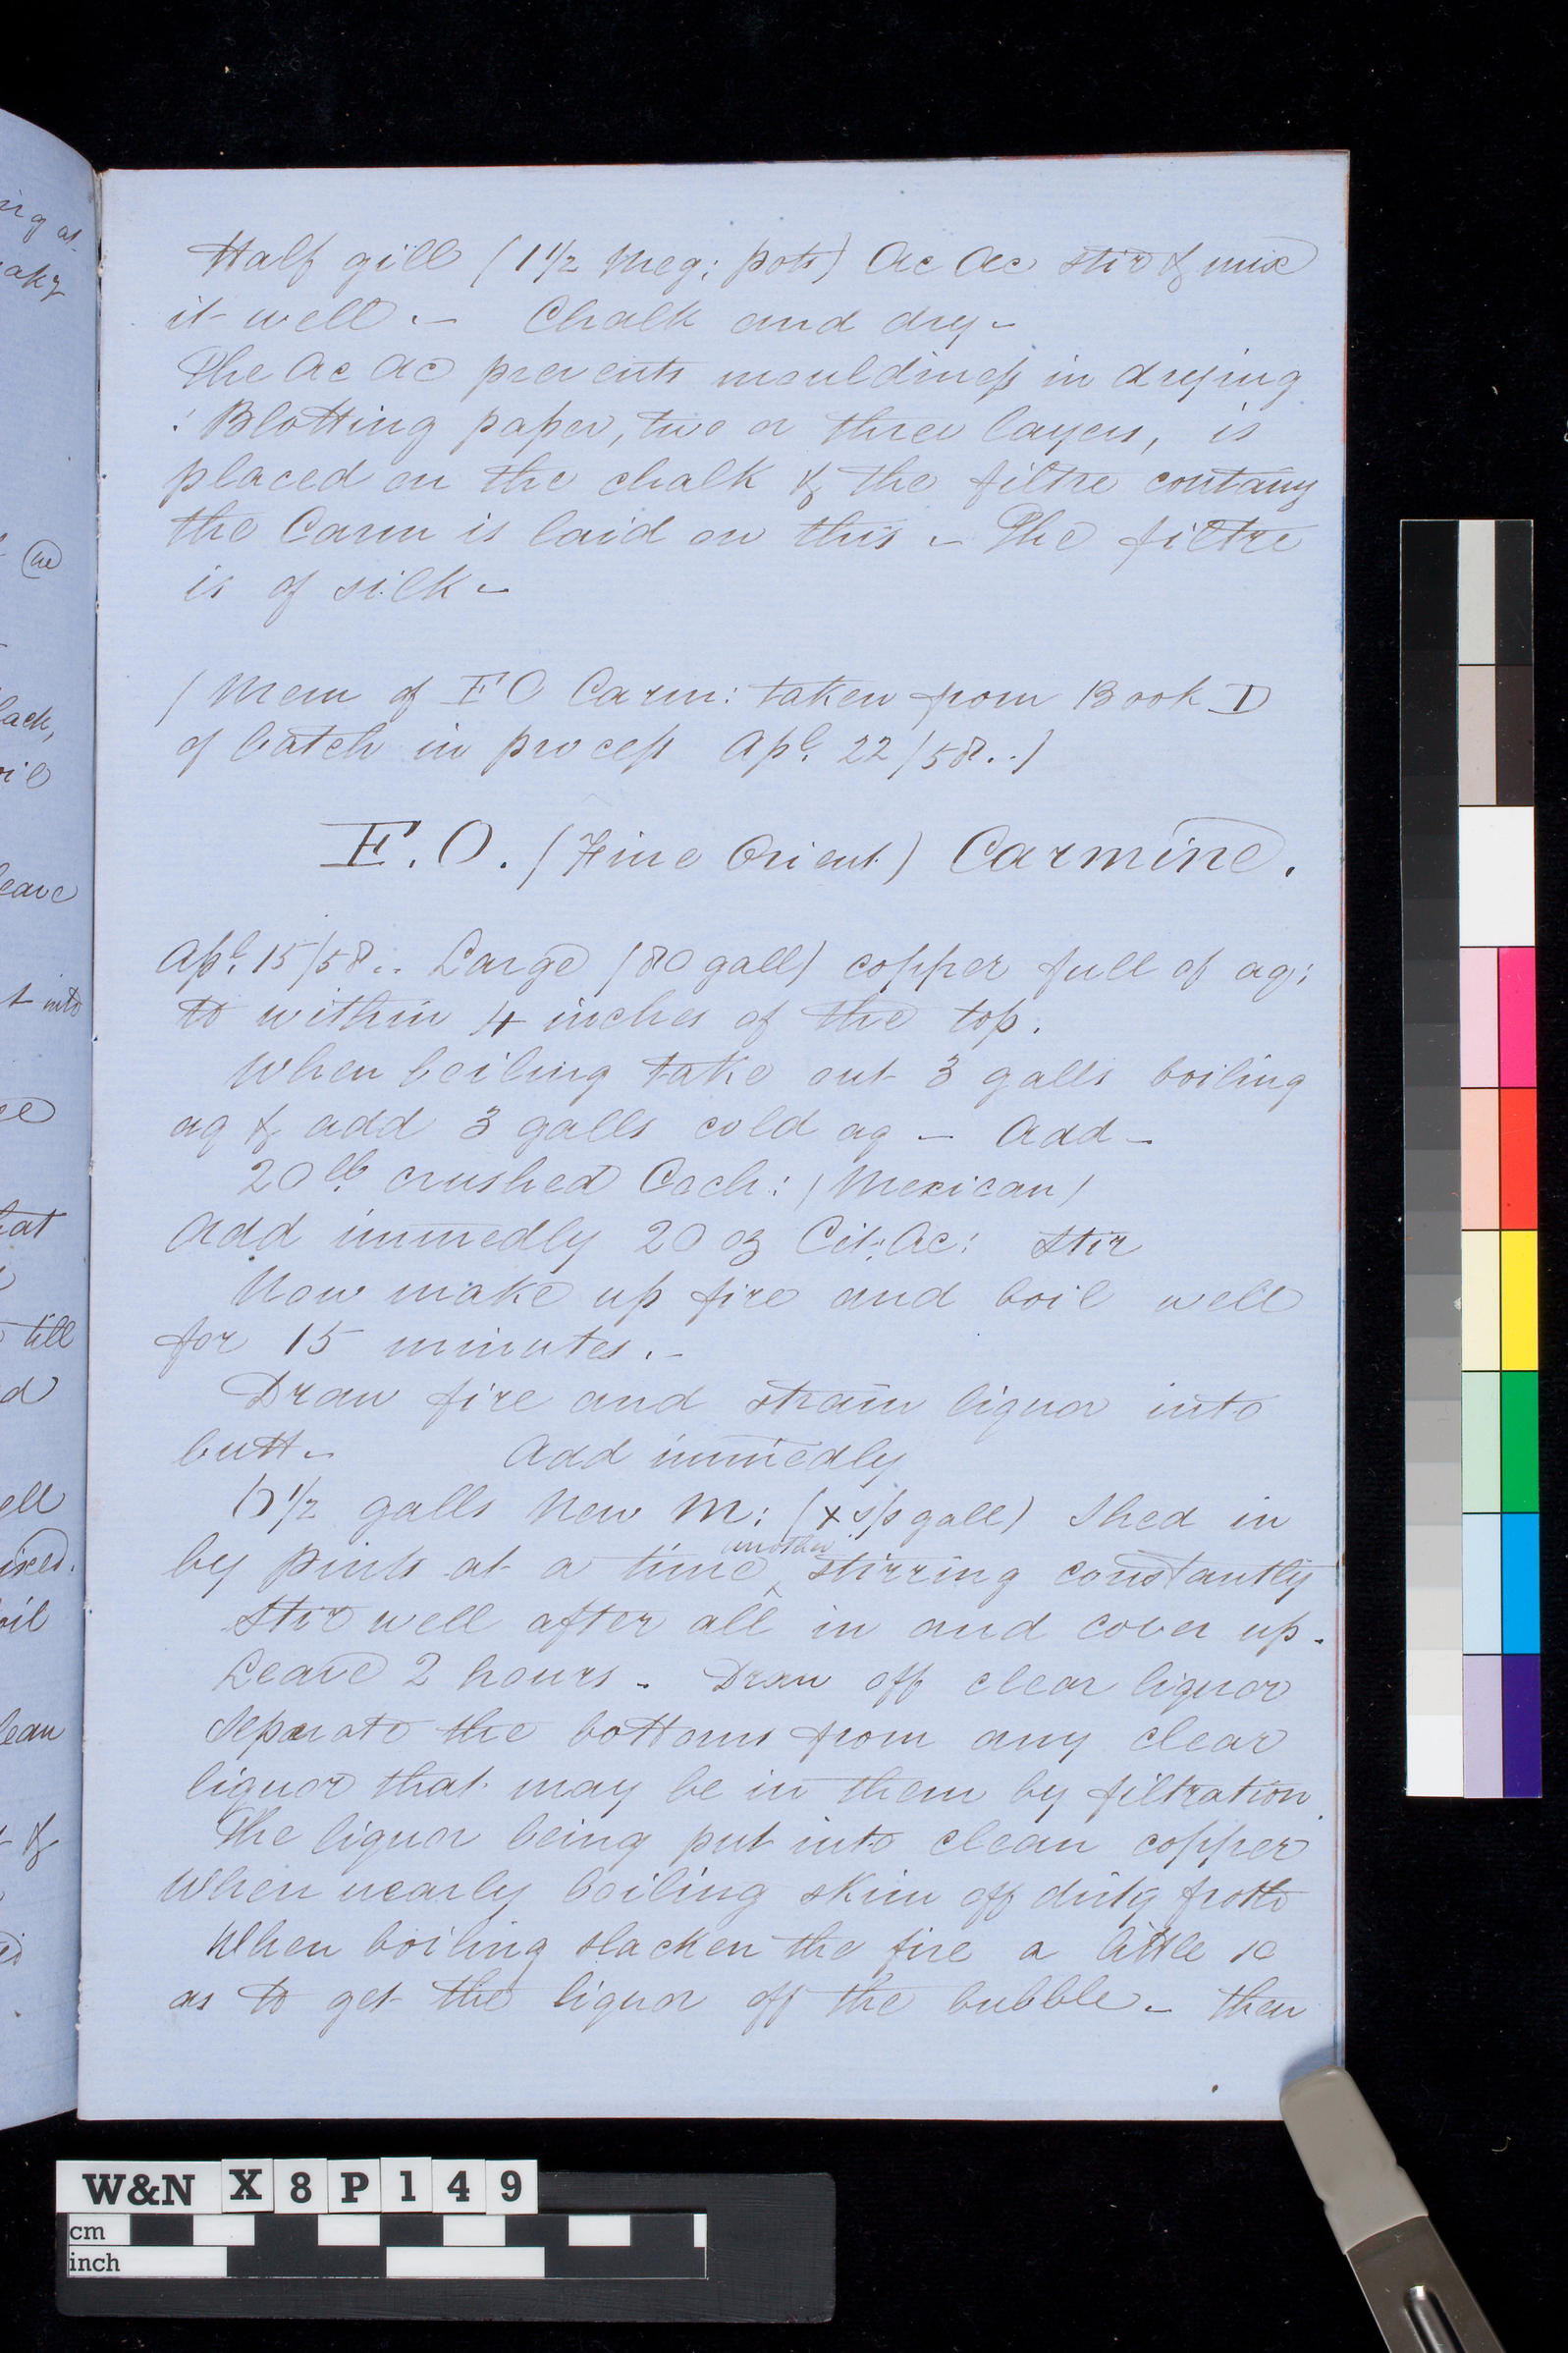 Half gill (1 1/2 Meg: pots) Ac Ac stir & mix
it well.— Chalk and dry—
The Ac Ac prevents mouldiness in drying
: Blotting paper, two or three layers, is
placed on the chalk & the filtre containg
the Carm is laid on this — The filtre
is of silk —
(Mem of F O Carm: taken from Book D
of batch in process Apl. 22/58..)
F. O. (Fine Orient) Carmine.
Apl. 15/58.. Large (80 gall) copper full of aq:
to within 4 inches of the top.
When boiling take out 3 galls boiling
aq & add 3 galls cold aq — Add —
20 lb. crushed Coch: (Mexican)
Add immedly 20 oz Cit: Ac: Stir
Now make up fire and boil well
for 15 minutes. —
Draw fire and strain liquor into
butt — Add immedly
1/2 galls New M: ( gall) Shed in
by pints at a time another stirring constantly
Stir well after all in and cover up.
Leave 2 hours. Draw off clear liquor
Separate the bottoms from any clear
liquor that may be in them by filtration.
The liquor being put into clean copper
When nearly boiling skim off dirty froth
When boiling slacken the fire a little so
as to get the liquor off the bubble — then
ing at
lack,
leave
t into
hat
till
ell
oil
lean
W&N X 8 P 1 4 9
cm
inch